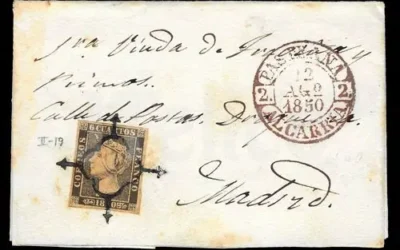 Sra Viuda de
y
Primos.
Calle de Postas.
Madrid.
II-19
CORREOS
6 CUARTOS
FRANCO
1850
PASTRANA
2
12
AGº
1850
2
ALCARRIA